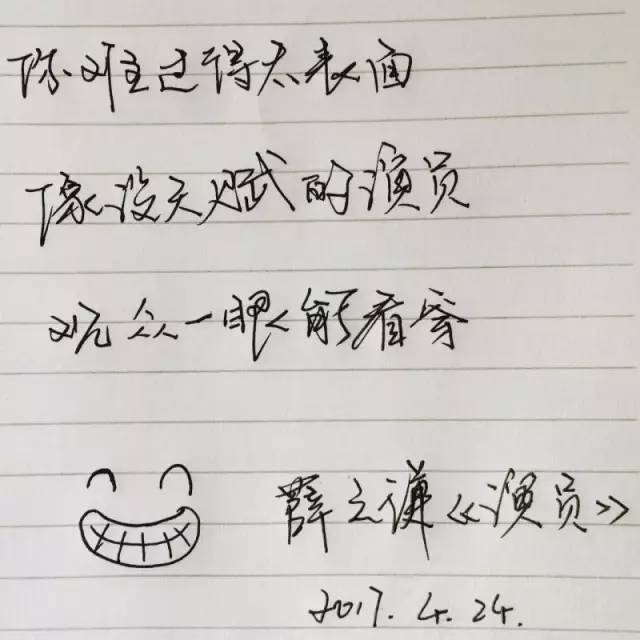 你难过得太表面
像没天赋的演员
观众一眼能看穿
薛之谦《演员》
2017.4.24.